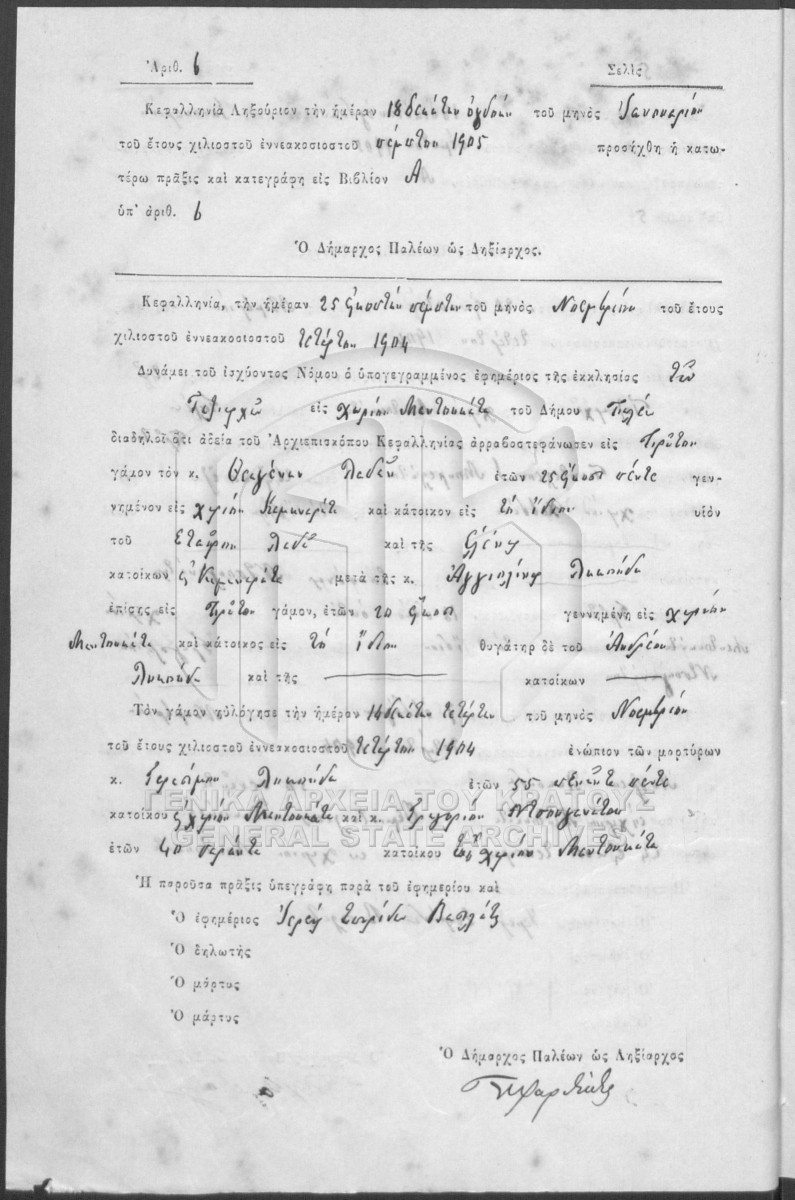 Ἀριθ. 6 Σελὶς
Κεφαλληνία Ληξούριον τὴν ἡμέραν 18 δεκάτην ὀγδόην τοῦ μηνὸς Ἰανουαρίου
τοῦ ἔτους χιλιοστοῦ ἐννεακοσιοστοῦ πέμπτου 1905 προσήχθη ἡ κατω-
τέρω πρᾶξις καὶ κατεγράφη εἰς Βιβλίον Α
ὑπ' ἀριθ. 6
Ὁ Δήμαρχος Παλέων ὡς Ληξίαρχος.
Κεφαλληνία, τὴν ἡμέραν 25 εἰκοστὴν πέμπτην τοῦ μηνὸς Νοεμβρίου τοῦ ἔτους
χιλιοστοῦ ἐννεακοσιοστοῦ τετάρτου 1904
Δυνάμει τοῦ ἰσχύοντος Νόμου ὁ ὑπογεγραμμένος ἐφημέριος τῆς ἐκκλησίας τῶν
Ταξιαρχῶν εἰς χωρίον Μαντουκάτα τοῦ Δήμου Παλέων
διαδηλοῖ ὅτι ἀδείᾳ τοῦ Ἀρχιεπισκόπου Κεφαλληνίας ἀρραβοστεφάνωσεν εἰς Πρῶτον
γάμον τὸν κ. Θεαγένην ἐτῶν 25 εἴκοσι πέντε γεν-
νημένον εἰς χωρίον Καμιναράτα καὶ κάτοικον εἰς τὸ ἴδιον υἱὸν
τοῦ καὶ τῆς Ἑλένης
κατοίκων Καμιναράτα μετὰ τῆς κ. Ἀγγελίνης
ἐπίσης εἰς Πρῶτον γάμον, ἐτῶν 20 εἴκοσι γεννημένη εἰς χωρίον
Μαντουκάτα καὶ κάτοικος εἰς τὸ ἴδιον θυγάτηρ δὲ τοῦ Ἀνδρέου
καὶ τῆς κατοίκων
Τὸν γάμον ηὐλόγησε τὴν ἡμέραν 14 δεκάτην τετάρτην τοῦ μηνὸς Νοεμβρίου
τοῦ ἔτους χιλιοστοῦ ἐννεακοσιοστοῦ τετάρτου 1904 ἐνώπιον τῶν μαρτύρων
κ. Γερασίμου ἐτῶν 55 πενῆντα πέντε
κατοίκου χωρίου Μαντουκάτα καὶ κ. Γρηγορίου
ἐτῶν 40 σαράντα κατοίκου χωρίου Μαντουκάτα
Ἡ παροῦσα πρᾶξις ὑπεγράφη παρὰ τοῦ ἐφημερίου καὶ
Ὁ ἐφημέριος Ἱερεὺς
Ὁ δηλωτὴς
Ὁ μάρτυς
Ὁ μάρτυς
Ὁ Δήμαρχος Παλέων ὡς Ληξίαρχος
ΓΕΝΙΚΑ ΑΡΧΕΙΑ ΤΟΥ ΚΡΑΤΟΥΣ
GENERAL STATE ARCHIVES